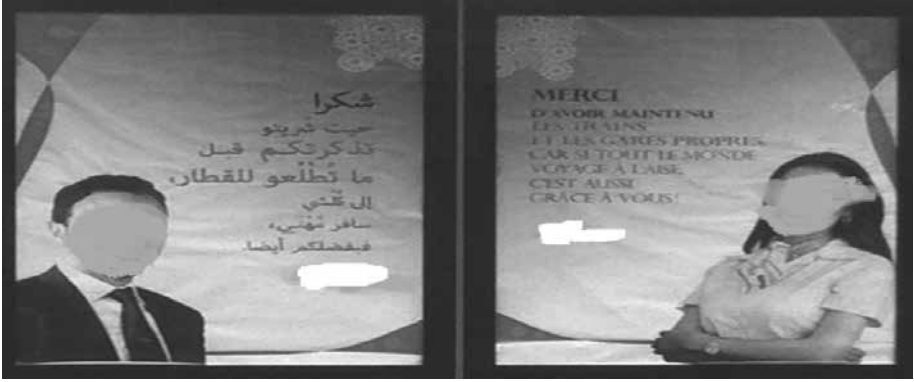 شكرا
حيت شريتو
تذكرتكم قبل
ما تْطلْعو للقطار،
إلى كلّشي
سافر مْهْني،
فبفضلكم أيضا.
MERCI
D'AVOIR MAINTENU
LES TRAINS
ET LES GARES PROPRES,
CAR SI TOUT LE MONDE
VOYAGE À L'AISE,
C'EST AUSSI
GRÂCE À VOUS!